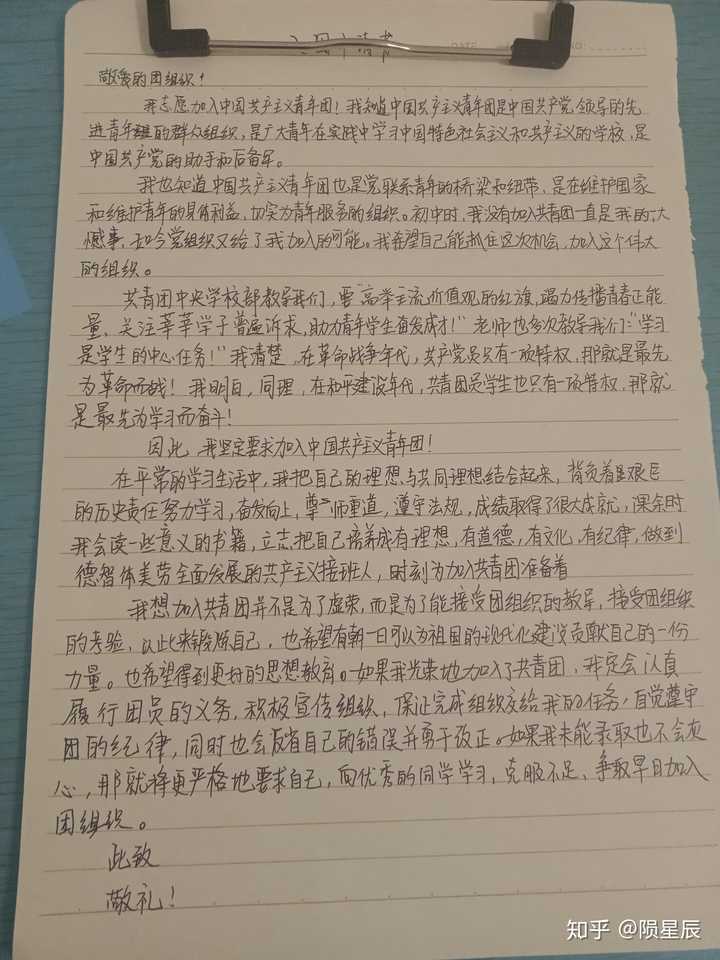 入团申请书
DATE
NO:
敬爱的团组织！
我志愿加入中国共产主义青年团！我知道中国共产主义青年团是中国共产党领导的先
进青年的群众组织，是广大青年在实践中学习中国特色社会主义和共产主义的学校，是
中国共产党的助手和后备军。
我也知道中国共产主义青年团也是党联系青年的桥梁和纽带，是在维护国家
和维护青年的具体利益，切实为青年服务的组织。初中时，我没有加入共青团一直是我的一大
憾事，如今党组织又给了我加入的可能。我希望自己能抓住这次机会，加入这个伟大
的组织。
共青团中央学校部教导我们，要"高举主流价值观的红旗，竭力传播青春正能
量，关注莘莘学子普遍诉求，助力青年学生奋发成才！"老师也多次教导我们："学习
是学生的中心任务！"我清楚，在革命战争年代，共产党员只有一项特权，那就是最先
为革命而战！我明白，同理，在和平建设年代，共青团员学生也只有一项特权，那就
是最先为学习而奋斗！
因此，我坚定要求加入中国共产主义青年团！
在平常的学习生活中，我把自己的理想与共同理想结合起来，背负着艰巨
的历史责任努力学习，奋发向上，尊师重道，遵守法规，成绩取得了很大成就，课余时
我会读一些意义的书籍，立志把自己培养成有理想，有道德，有文化，有纪律，做到
德智体美劳全面发展的共产主义接班人，时刻为加入共青团准备着
我想加入共青团并不是为了虚荣，而是为了能接受团组织的教导，接受团组织
的考验，以此来锻炼自己，也希望有朝一日可以为祖国的现代化建设贡献自己的一份
力量。也希望得到更好的思想教育。如果我光荣地加入了共青团，我定会认真
履行团员的义务，积极宣传组织，保证完成组织交给我的任务，自觉遵守
团的纪律，同时也会反省自己的错误并勇于改正。如果我未能录取也不会灰
心，那就将更严格地要求自己，向优秀的同学学习，克服不足，争取早日加入
团组织。
此致
敬礼！
知乎 @陨星辰